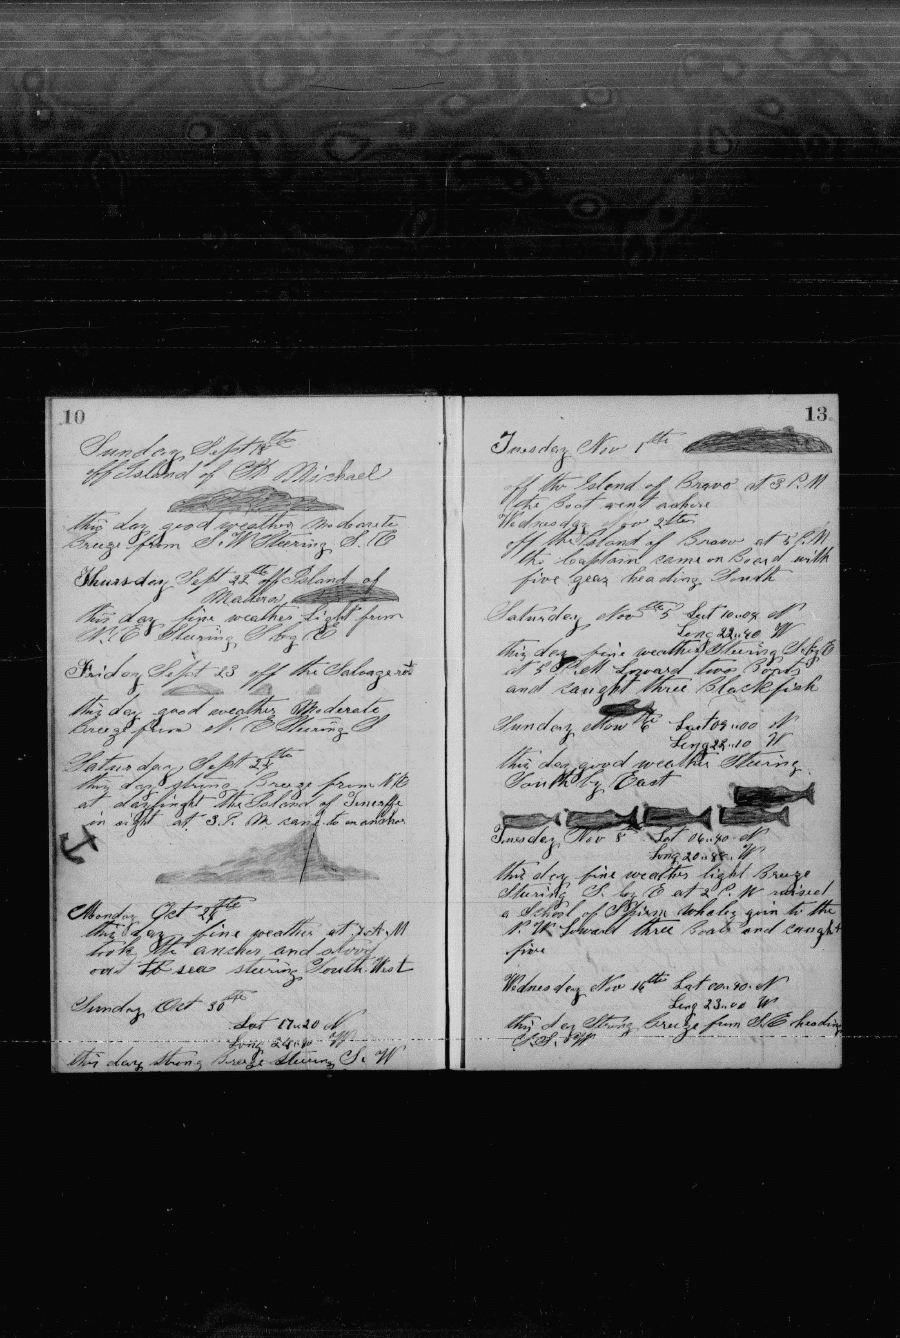 10
Sunday Sept 18th
off Island of St Michael
this day good weather Moderate
Breeze from S. W Steering S. E
Thursday Sept 22th off Island of
Madera
this day fine weather Light from
N. E Steering S by E
Friday Sept 23 off the
this day good weather Moderate
Breeze from N. E Steering S
Saturday Sept 24th
this day strong Breeze from N E
at daylight the Island of Teneriffe
in sight at 3. P. M came to an anchor
Monday Oct 24th
this day fine weather at A. M
took the anchor and stood
out to sea steering South West
Sunday Oct 30th
Lat 17..20 N
Long W
this day strong Breeze steering S. W
13
Tuesday Nov 1th
off the Island of Bravo at 3 P. M
the Boat went ashore
Wednesday Nov 2th
off the Island of Bravo at 5 P. M
the Captain came on Board with
five heading South
Saturday Nov 5th Lat 10..04 N
Long 22..40 W
this day fine weather Steering S. by E
at 5 P. M Lowered two Boats
and caught three Blackfish
Sunday Nov 6th Lat 09..00 N
Long 22..10 W
this day good weather Steering
South by East
Tuesday Nov 8th Lat 06..40 N
Long 20..88 W
this day fine weather light Breeze
Steering S. by E at 2 P. M raised
a School of Sperm Whales to the
Lowered three Boats and caught
five
Wednesday Nov 16th Lat 00..40 N
Long 23..00 W
this day Strong Breeze from S. E heading
S. S. W